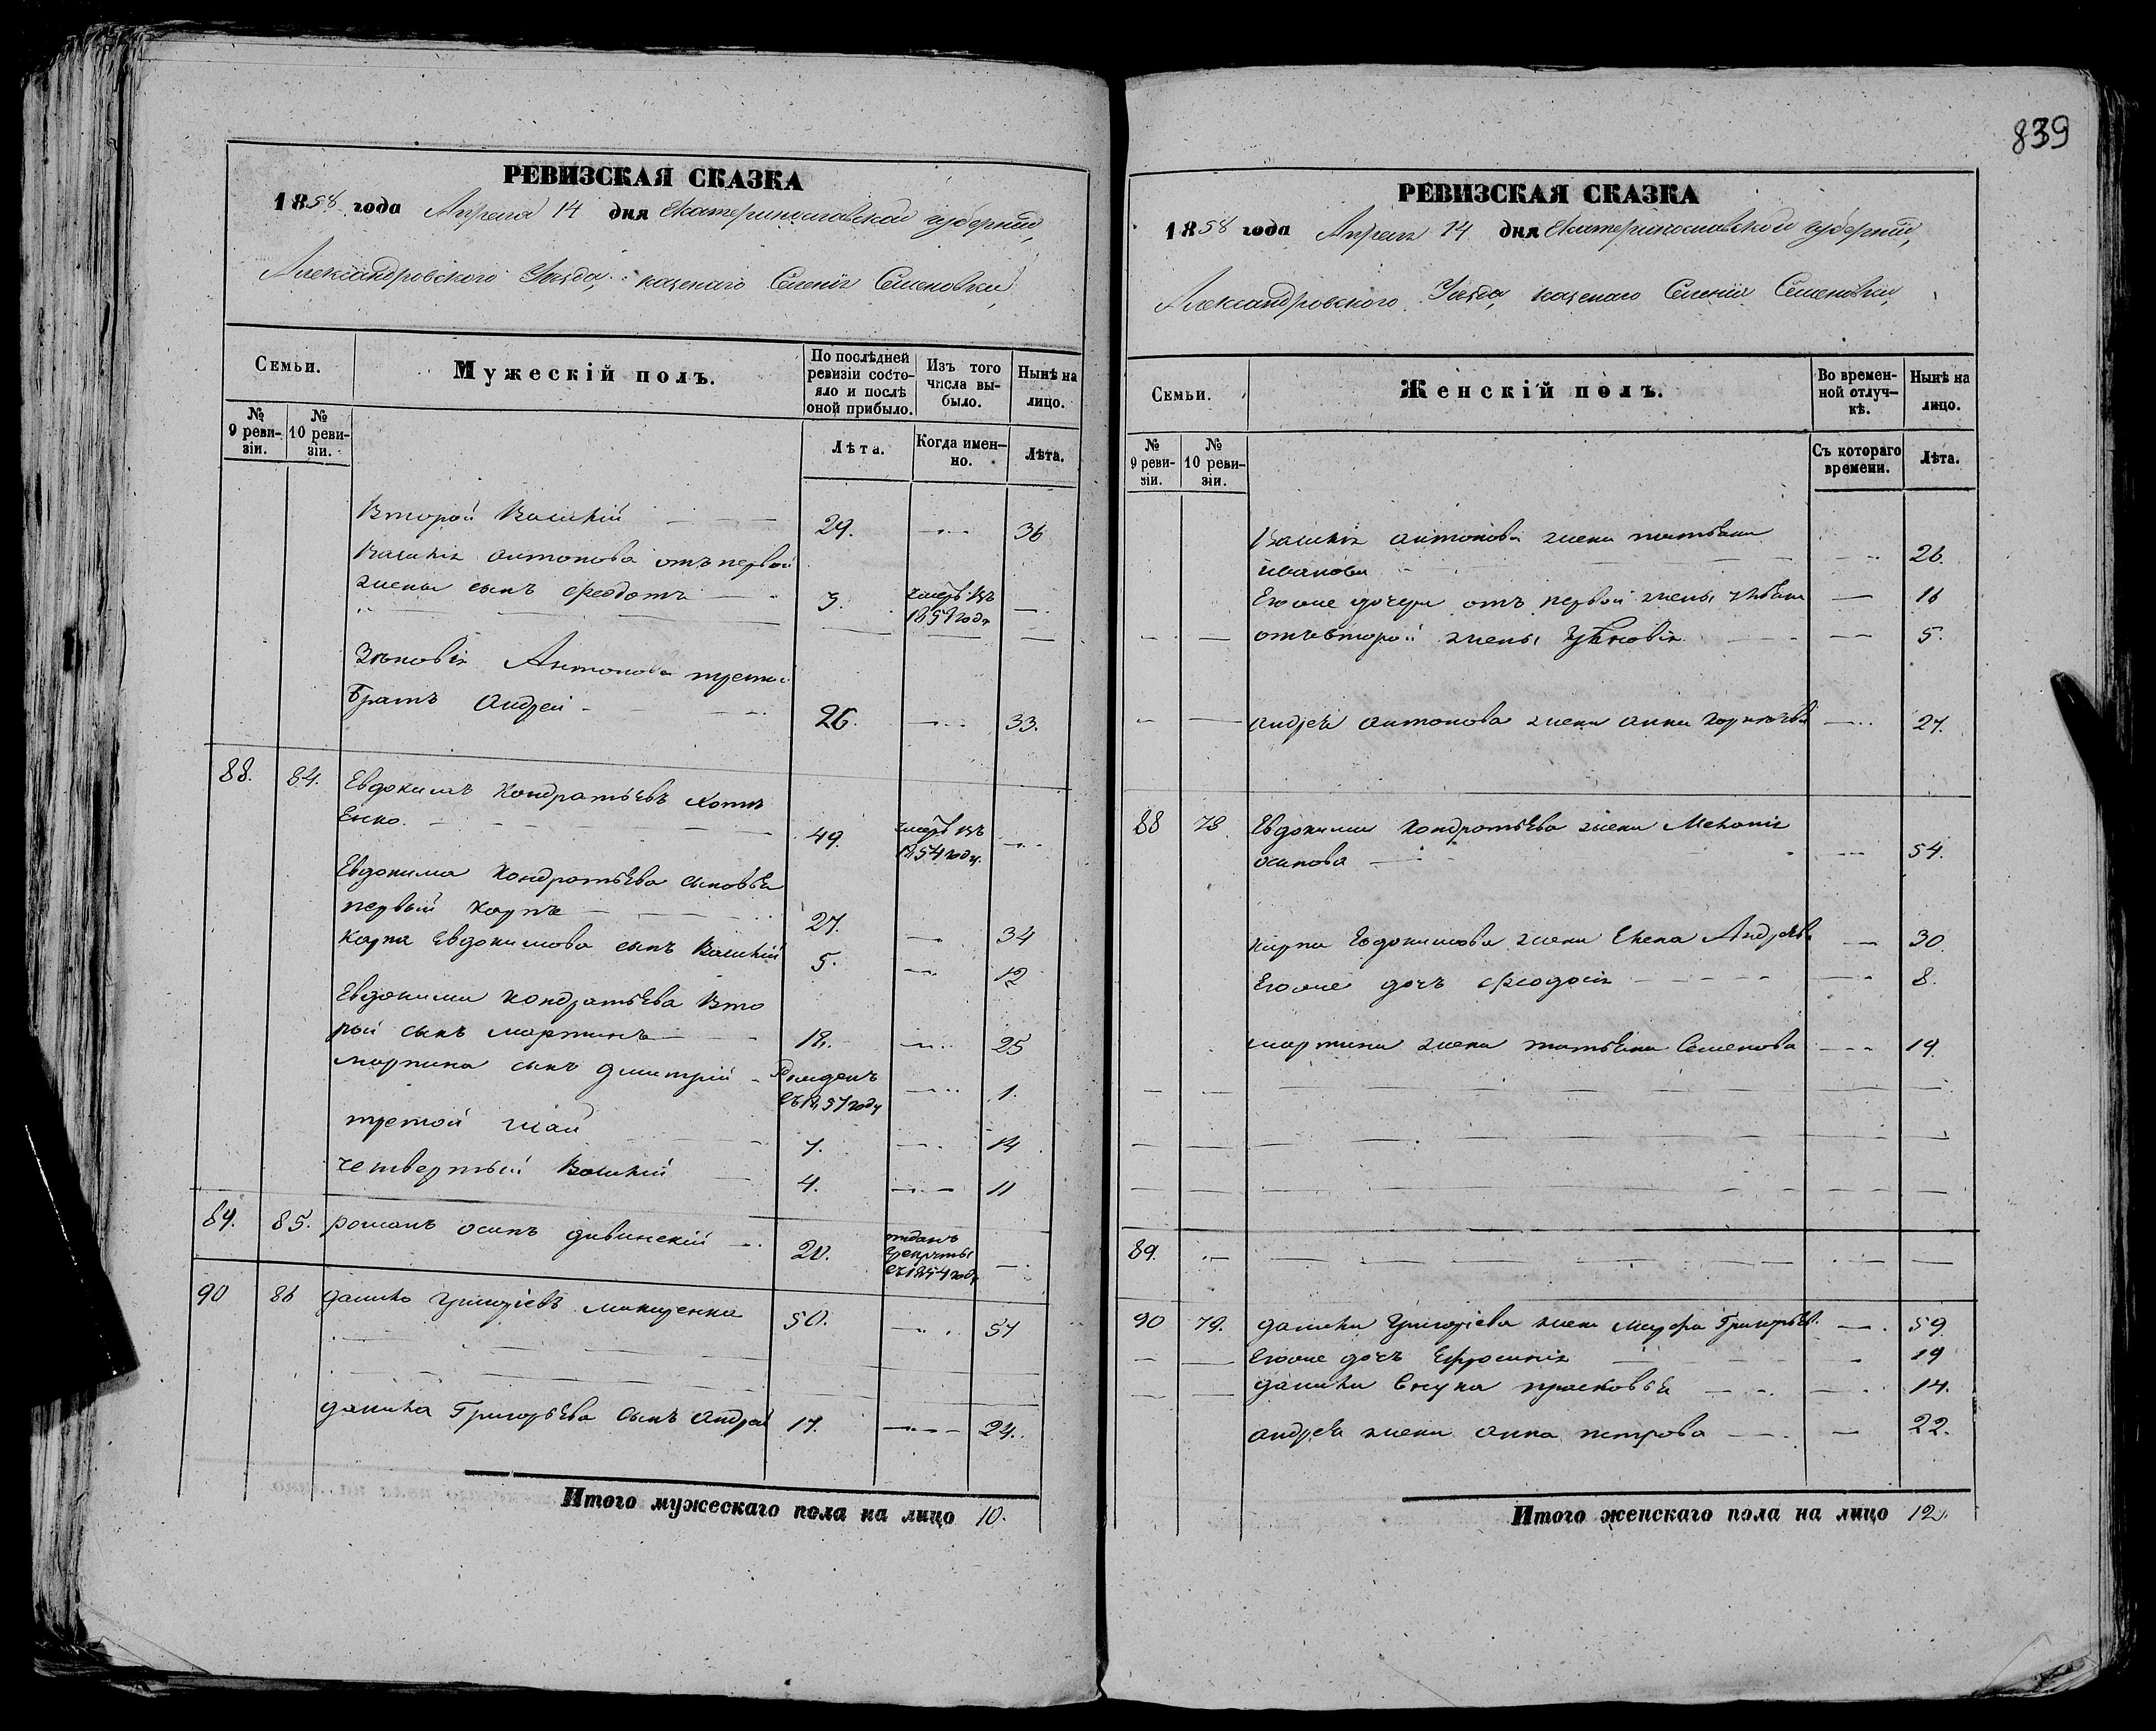 839
РЕВИЗСКАЯ СКАЗКА
1858 года Апреля 14 дня Екатеринославской губерніи,
Александровского Уѣзда, казенаго Селенія Семеновки,
Семьи.
Мужескій полъ.
По послѣдней ревизіи состояло и послѣ оной прибыло.
Изъ того числа выбыло.
Нынѣ на лицо.
№ 9 ревизіи.
№ 10 ревизіи.
Лѣта.
Когда именно.
Лѣта.
Второй Василій 29. 36
Василія антонова отъ первой
жены сынъ Феодотъ 3. умеръ въ 1857 году
Зѣновія Антонова третій
братъ Андрей 26. 33.
88. 84. Евдокимъ Кондратьевъ
енко. 49. умеръ въ 1854 году.
Евдокима Кондратьева сыновья
первый Карпъ 27. 34
Карпа Евдокимова сынъ Василій 5. 12
Евдокима Кондратьева Вто
рый сынъ мартинъ 18. 25
мартина сынъ дмитрій Рожденъ въ 1857 году 1.
третій 7. 14
четвертый Василій 4. 11
89. 85. романъ осипъ дивинскій 20. отданъ врекруты въ 1854 году
90 86 данило Григоріевъ 50. 57
данила Григорьева сынъ андрей 17. 24.
Итого мужескаго пола на лицо 10.
РЕВИЗСКАЯ СКАЗКА
1858 года Апреля 14 дня Екатеринославской губерніи,
Александровского Уѣзда, казенаго Селенія Семеновки,
Семьи.
Женскій полъ.
Во временной отлучкѣ.
Нынѣ на лицо.
№ 9 ревизіи.
№ 10 ревизіи.
Съ котораго времени.
Лѣта.
Василія антонова жена татьяна
иванова 26.
Егоже дочери отъ первой жены 16
отъ второй жены Зѣновія 5.
андрея антонова жена анна 27.
88 78. Евдокима Кондратьева жена Меланія
осипова 54.
карпа Евдокимова жена Елена Андреева 30.
Егоже дочь Феодосія 8.
мартина жена татьяна Семенова 19.
89.
90 79. данила Григоріева жена Григорьев. 59
Егоже дочь Ефросинія 19
данила внука прасковья 14.
андрея жена анна петрова 22.
Итого женскаго пола на лицо 12.